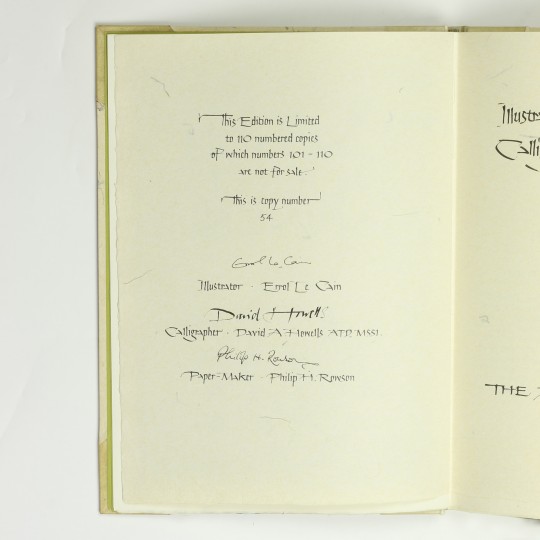 This Edition is Limited
to 110 numbered copies
of which numbers 101 - 110
are not for sale
This is copy number
54
Errol Le Cain
Illustrator · Errol Le Cain
David Howells
Calligrapher · David A Howells ATD, MSSI.
Philip H. Rowson
Paper-Maker · Philip H. Rowson
THE